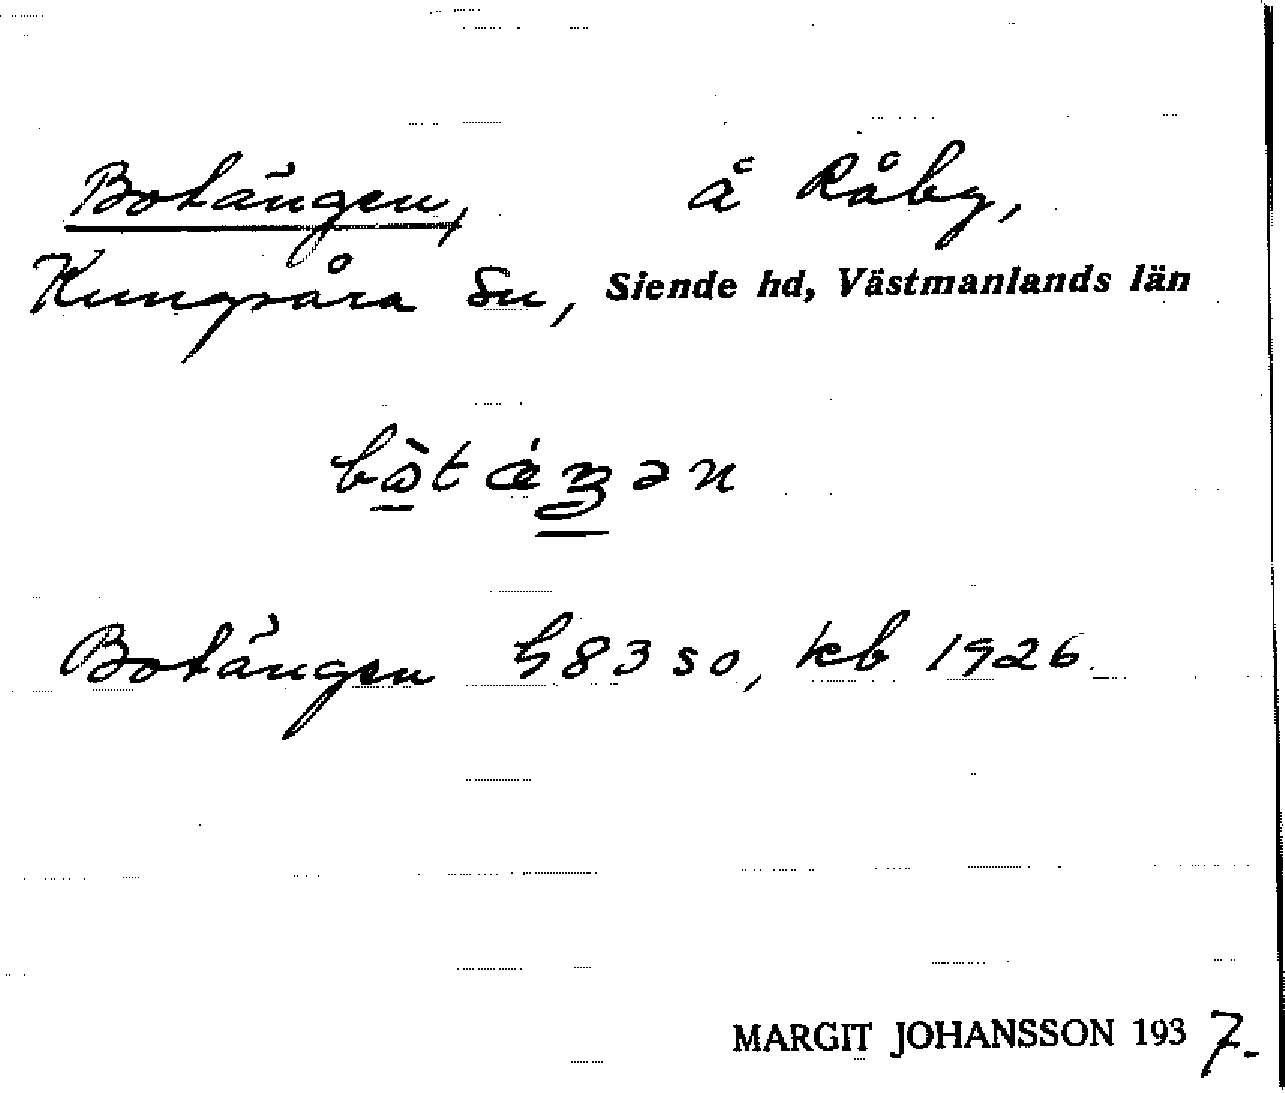 Botängen, å Råby,
Kungsåra Sn, Siende hd, Västmanlands län
Botängen h 83 so, kb 1926.
MARGIT JOHANSSON 1937.